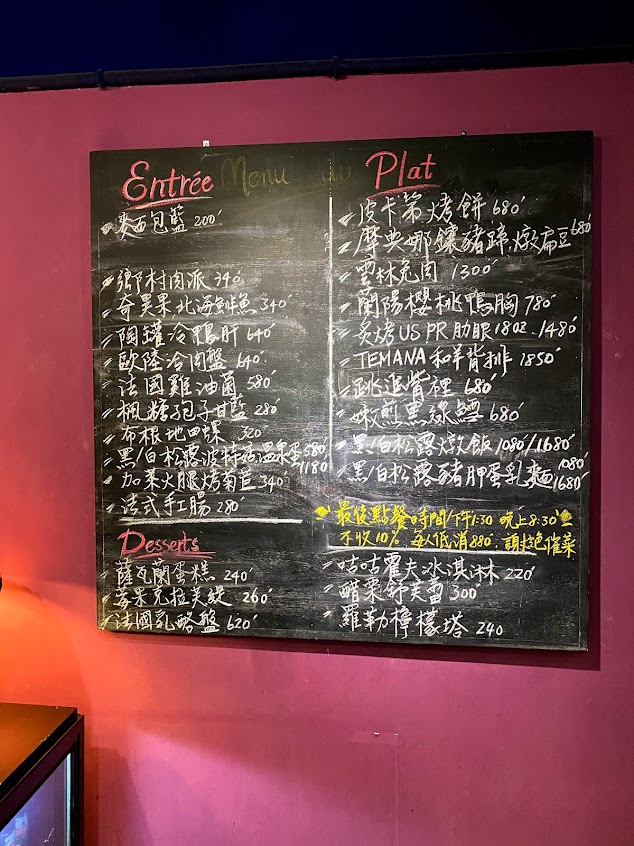 Entrée
麵包籃 200
鄉村肉派 340
奇異果北海鮭魚 340
陶罐冷鴨肝 640
歐陸冷肉盤 640
法國雞油菌 580
楓糖孢子甘藍 280
布根地田螺 320
黑/白松露波特菇溫泉蛋 580 1180
加萊火腿烤菊苣 340
法式手工腸 280
Desserts
薩瓦蘭蛋糕 240
莓果克拉芙緹 260
法國乳酪盤 620
Menu
Plat
皮卡第烤餅 680
摩典娜鑲豬蹄.燉扁豆 680
雲林兔肉 1300
蘭陽櫻桃鴨胸 780
炙烤US PR肋眼18oz. 1480
TEMANA和羊背排 1850
跳進嘴裡 680
嫩煎黑線鱈 680
黑/白松露燉飯 1080/1680
黑/白松露豬胛蛋乳麵 1080 1680
最後點餐時間/下午1:30 晚上8:30
不收10% 每人低消880. 謝絕催菜
咕咕霍夫冰淇淋 220
醋栗舒芙蕾 300
羅勒檸檬塔 240